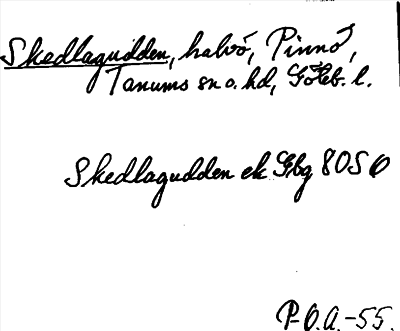 Skedlagudden, halvö, Pinnö,
Tanums sn o. hd, Göteb. l.
Skedlagudden ek Gbg 80SO
P-O.A.-55.